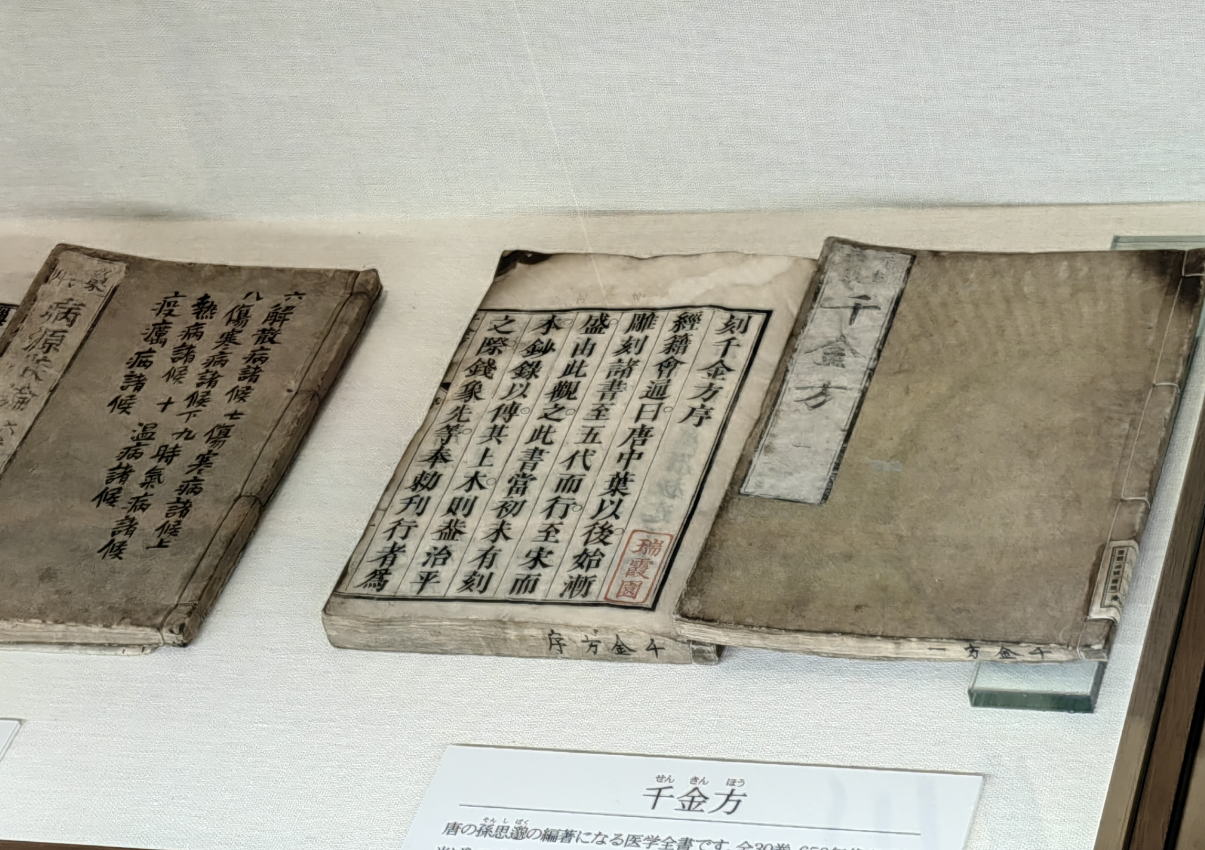 病源
六解散病諸候七傷寒病諸候上
八傷寒病諸候下九時氣病諸候
熱病諸候十温病諸候
疫癘病諸候
刻千金方序
經籍會通曰唐中葉以後始漸
雕刻諸書至五代而行至宋而
盛由此觀之此書當初未有刻
本鈔錄以傳其上木則葢治平
之際錢象先等奉勅刊行者爲
瑞霞園
千金方序
千金方
千金方一
せん きん ほう
千金方
そん し ばく
唐の孫思邈の編著になる医学全書です。全30巻、650年